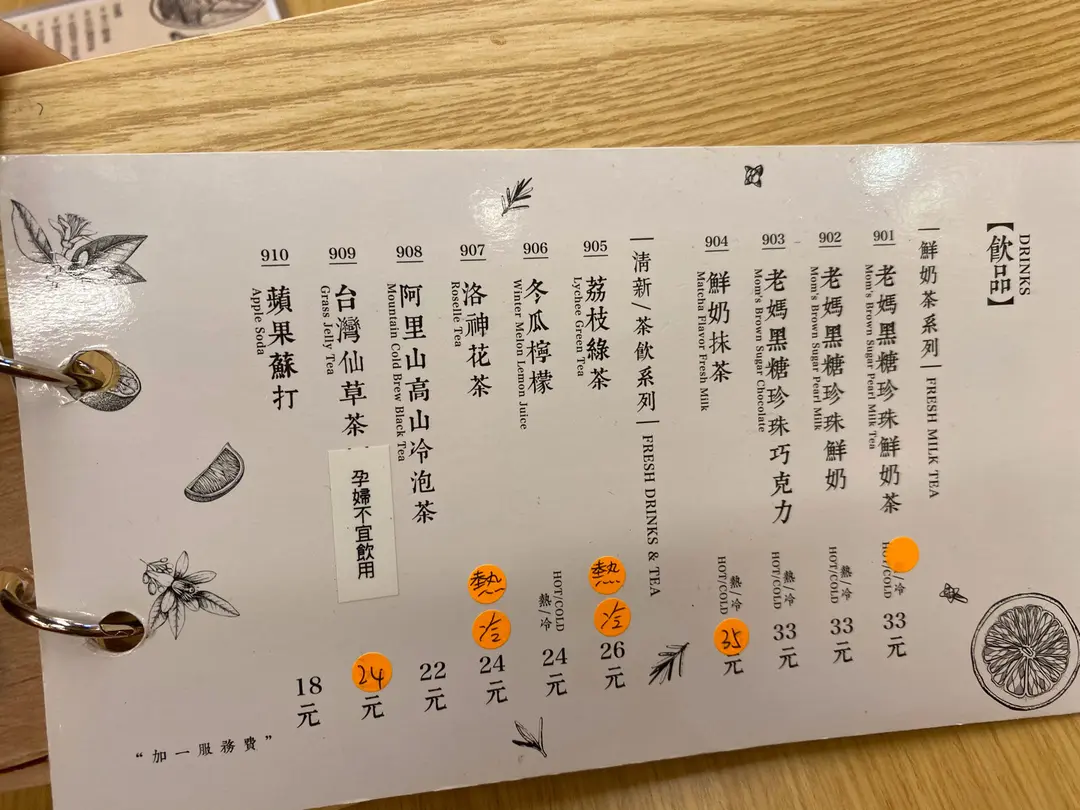 DRINKS
【飲品】
鮮奶茶系列 | FRESH MILK TEA
901 老媽黑糖珍珠鮮奶茶 /冷 33元
Mom's Brown Sugar Pearl Milk Tea HOT/COLD
902 老媽黑糖珍珠鮮奶 熱/冷 33元
Mom's Brown Sugar Pearl Milk HOT/COLD
903 老媽黑糖珍珠巧克力 熱/冷 33元
Mom's Brown Sugar Chocolate HOT/COLD
904 鮮奶抹茶 熱/冷 35元
Matcha Flavor Fresh Milk HOT/COLD
清新/茶飲系列 | FRESH DRINKS & TEA
905 荔枝綠茶 熱 冷 26元
Lychee Green Tea
906 冬瓜檸檬 HOT/COLD 熱/冷 24元
Winter Melon Lemon Juice
907 洛神花茶 熱 冷 24元
Roselle Tea
908 阿里山高山冷泡茶 22元
Mountain Cold Brew Black Tea
909 台灣仙草茶 孕婦不宜飲用 24元
Grass Jelly Tea
910 蘋果蘇打 18元
Apple Soda
“加一服務費”